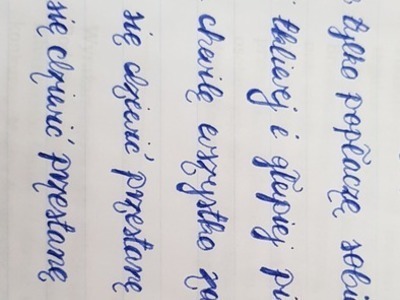 tylko popłaczę sobi
tkliwej i głupiej pi
chwilę wszystko
się dziwić przestanę
się dziwić przestanę